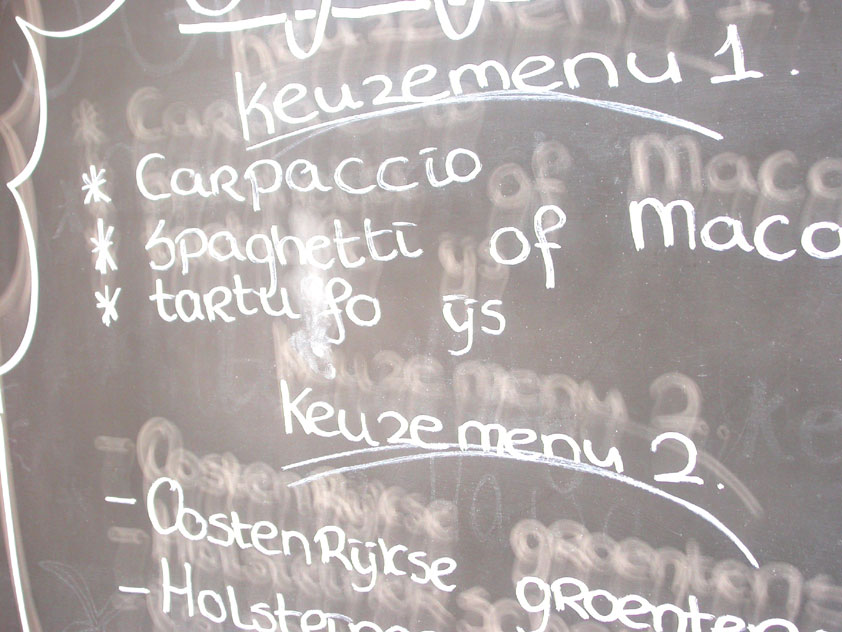 Keuzemenu 1.
* Carpaccio
* Spaghetti of Maco
* tartufo ijs
Keuzemenu 2.
- Oostenrijkse groenten
- Holstein